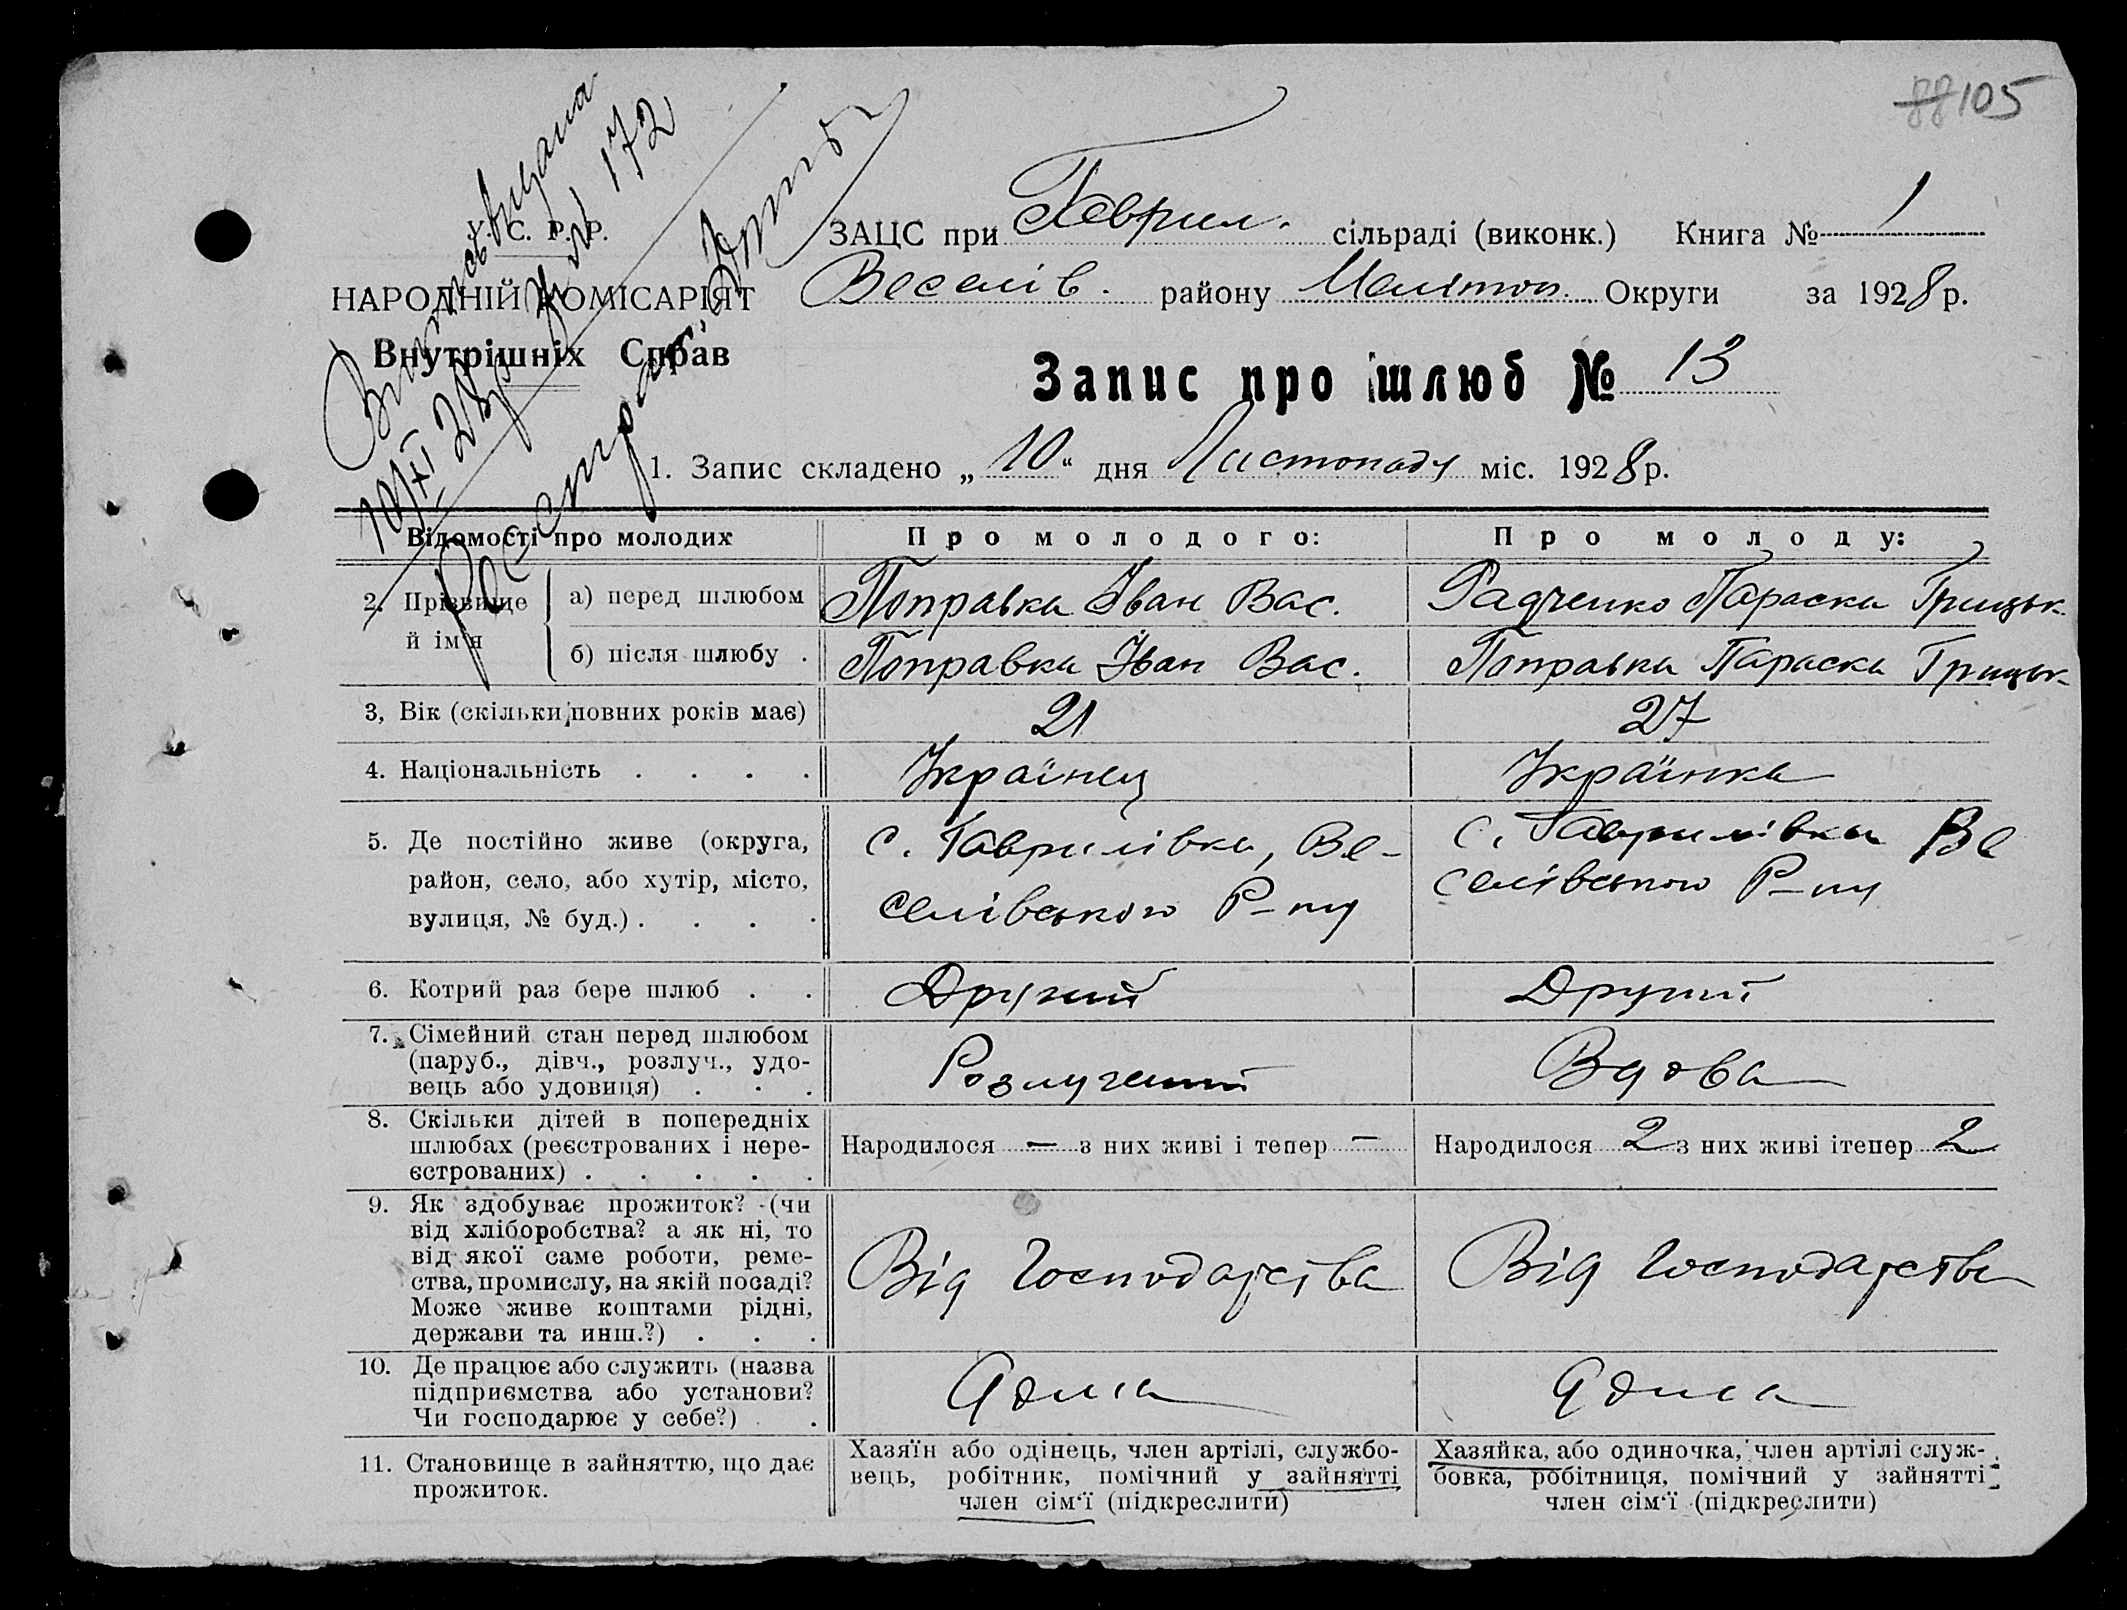 88 105
Виписъ видана
10/XI 28 р. за № 172
У. С. Р. Р.
НАРОДНІЙ КОМІСАРІЯТ
Внутрішніх Справ
ЗАЦС при Гаврил. сільраді (виконк.) Книга № 1
Веселів. району Меліtоп. Округи за 1928 р.
Запис про шлюб № 13
1. Запис складено „10“ дня Листопаду міс. 1928 р.
Відомості про молодих Про молодого: Про молоду:
2. Прізвище й ім'я
а) перед шлюбом Поправка Іван Вас. Радченко Параска Грицьк.
б) після шлюбу . Поправка Іван Вас. Поправка Параска Грицьк.
3, Вік (скільки повних років має) 21 27
4. Національність . . . . Українец Українка
5. Де постійно живе (округа, район, село, або хутір, місто, вулиця, № буд.) . . . .
с. Гаврилівка, Ве-
селівського Р-ну
с. Гаврилівка Ве
селівського Р-ну
6. Котрий раз бере шлюб . . Другий Другий
7. Сімейний стан перед шлюбом
(паруб., дівч., розлуч., удо-
вець або удовиця) . . . Розлучений Вдова
8. Скільки дітей в попередніх
шлюбах (реєстрованих і нере-
єстрованих) . . . . .
Народилося — з них живі і тепер —
Народилося 2 з них живі ітепер 2
9. Як здобуває прожиток? (чи
від хліборобства? а як ні, то
від якої саме роботи, реме-
ства, промислу, на якій посаді?
Може живе коштами рідні,
держави та инш.?) . . .
Від господарства Від господарства
10. Де працює або служить (назва
підприємства або установи?
Чи господарює у себе?) . .
Дома Дома
11. Становище в зайняттю, що дає
прожиток.
Хазяїн або одінець, член артілі, службо-
вець, робітник, помічний у зайнятті
член сім'ї (підкреслити)
Хазяйка, або одиночка, член артілі служ-
бовка, робітниця, помічний у зайнятті
член сім'ї (підкреслити)